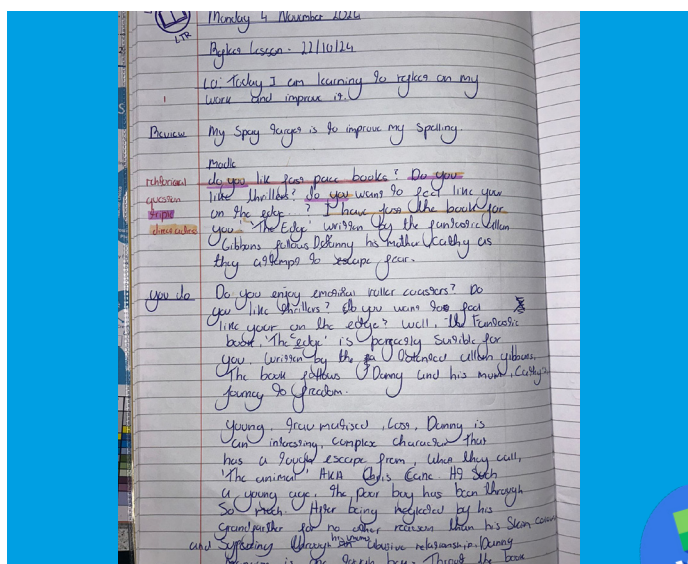 Monday 4 November 2024
LTR
Reflect Lesson - 22/10/24
LO: Today I am learning to reflect on my
work and improve it.
1
Review My Spag target is to improve my spelling.
Modle
do you lik fast pace books? Do you
rethorical like thrillers? do you want to feel line your
question on the edge? I have just the book for
triple you. 'The Edge' written by the fantastic Allan
direct address Gibbons follows Danny his mother Cathy as
they attempt to escape fear.
you do Do you enjoy emotinal roller coasters? Do
you like thrillers? Do you want to feel
line your on the edge? well, the Fantastic
book, 'The Edge' is perfectly suitible for
you, written by the allan gibbons,
The book follows Danny and his mum, Cathy's
journey to freedom.
Young, traumatised, Lost, Danny is
an intersting, complex character that
has a tought escape from, what they call,
'The animal' AKA Chris Kane. At such
a young age, the poor boy has been through
so much. After being neglected by his
grandfarther for no other reason than his Skin colour
and Suffering through his mums abusive relationship. Danny
is one tough boy. Through the book